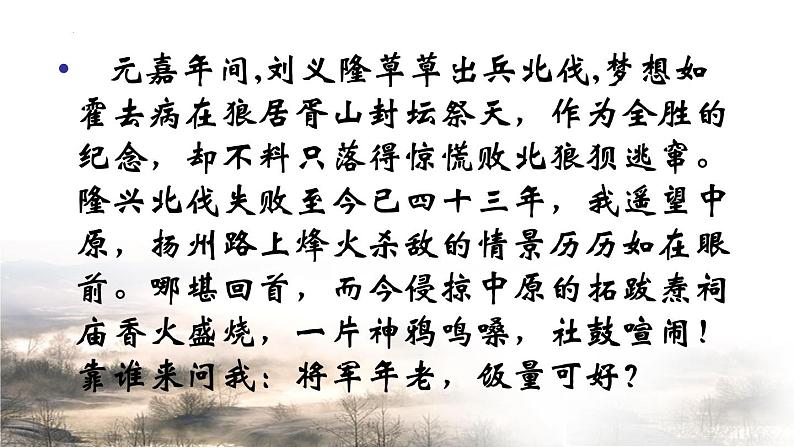 • 元嘉年间,刘义隆草草出兵北伐,梦想如
霍去病在狼居胥山封坛祭天，作为全胜的
纪念，却不料只落得惊慌败北狼狈逃窜。
隆兴北伐失败至今已四十三年，我遥望中
原，扬州路上烽火杀敌的情景历历如在眼
前。哪堪回首，而今侵掠中原的拓跋焘祠
庙香火盛烧，一片神鸦鸣嗓，社鼓喧闹！
靠谁来问我：将军年老，饭量可好？